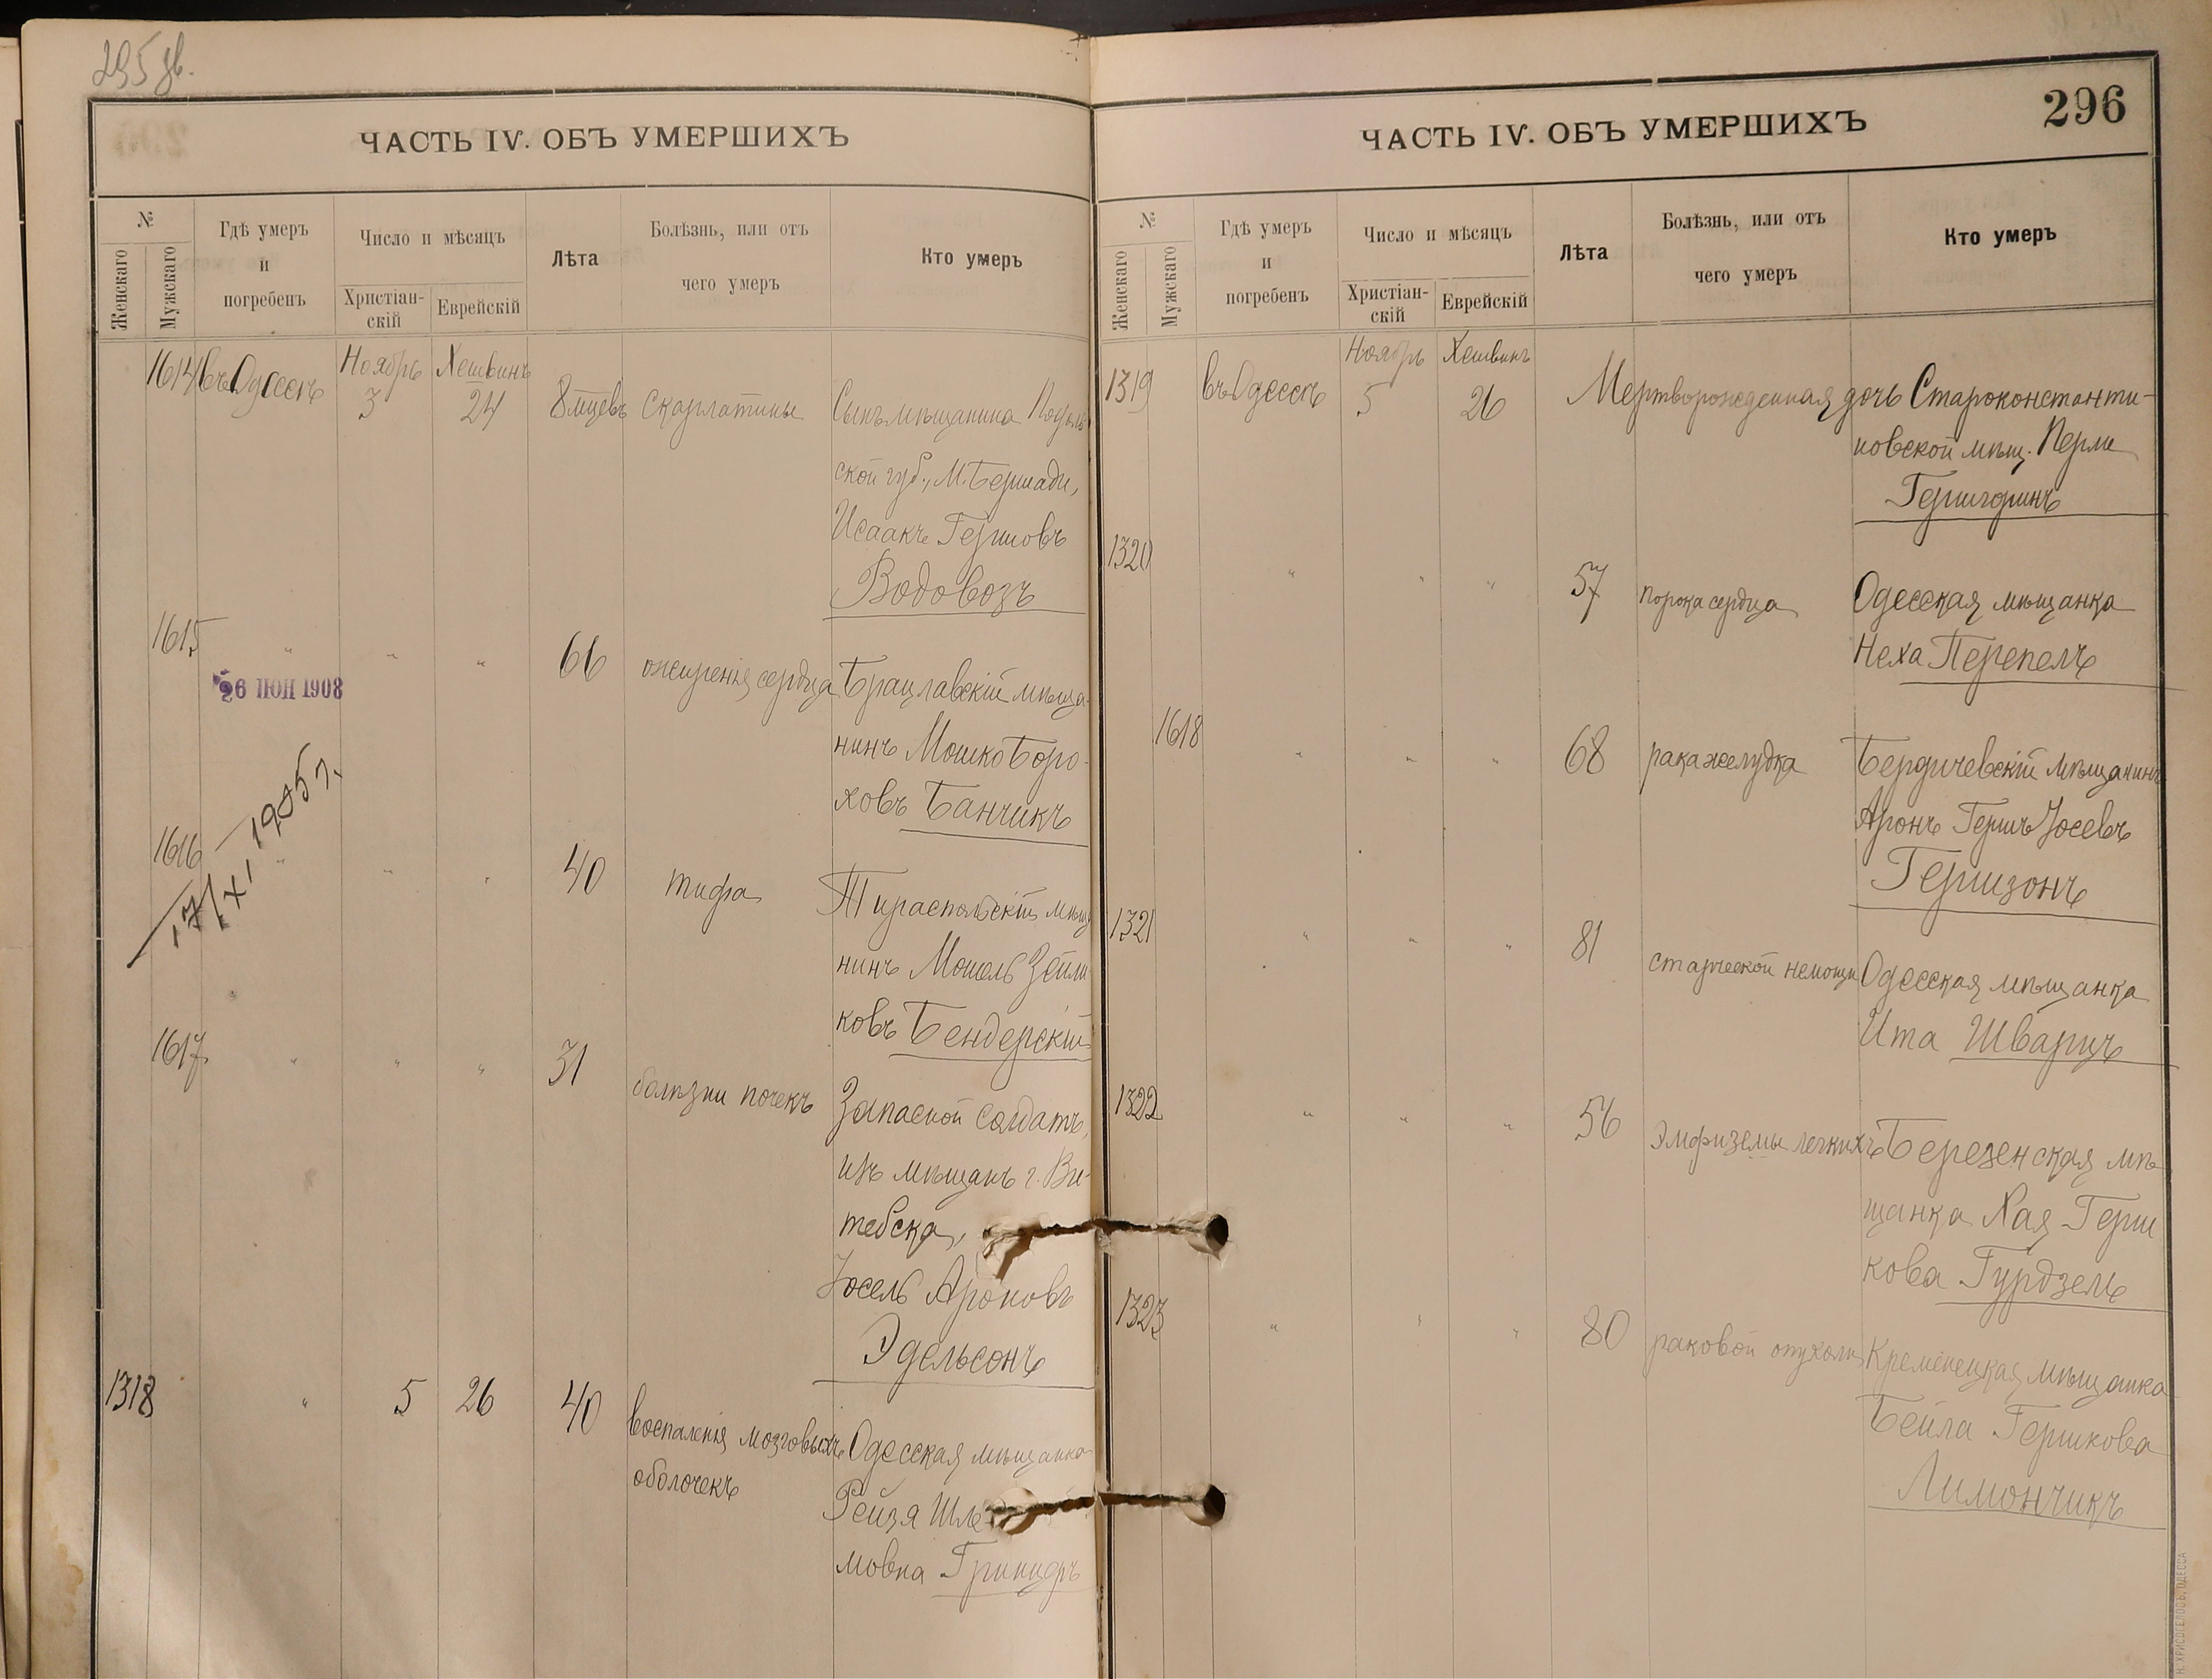 295 дв.
ЧАСТЬ IV. ОБЪ УМЕРШИХЪ
№
Женскаго
Мужскаго
Гдѣ умеръ
и
погребенъ
Число и мѣсяцъ
Христіан-
скій
Еврейскій
Лѣта
Болѣзнь, или отъ
чего умеръ
Кто умеръ
1614 въ Одессѣ Ноябрь 3 Хешвинъ 24 8 мѣцевъ Скарлатины Сынъ мѣщанина Подоль
ской губ., М. Бершади,
Исаакъ Гершовъ
Водовозъ
1615 " " " 66 ожиренія сердца Брацлавскій мѣща-
26 ІЮН 1908
нинъ Мошко Боро-
ховъ Банчикъ
17/XI 1905 г.
1616 " " " 40 тифа Тираспольскій мѣща
нинъ Мошель Зейли
ковъ Бендерскій
1617 " " " 31 болѣзни почекъ Запасной солдатъ,
изъ мѣщанъ г. Ви-
тебска,
Іосель Ароновъ
Эдельсонъ
1318 " 5 26 40 воспаленія мозговыхъ Одесская мѣщанка
оболочекъ
Рейзя Шле
мовна
ЧАСТЬ IV. ОБЪ УМЕРШИХЪ
296
№
Женскаго
Мужскаго
Гдѣ умеръ
и
погребенъ
Число и мѣсяцъ
Христіан-
скій
Еврейскій
Лѣта
Болѣзнь, или отъ
чего умеръ
Кто умеръ
1319 въ Одессѣ Ноябрь 5 Хешвинъ 26 Мертворожденная дочь Староконстанти-
новской мѣщ. Перли
Гершгоринъ
1320 " " " 57 порока сердца Одесская мѣщанка
Неха Перепелъ
1618 " " " 68 рака желудка Бердичевскій мѣщанинъ
Аронъ Гершъ Іосевъ
Гершзонъ
1321 " " " 81 старческой немощи Одесская мѣщанка
Ита Шварцъ
1322 " " " 56 Эмфиземы легкихъ Березенская мѣ-
щанка Хая Герш
кова Гурдзель
1323 " " " 80 раковой опухоли Кременецкая мѣщанка
Бейла Гершкова
Лимончикъ
Н. ХРИСОГЕЛОСЪ, ОДЕССА